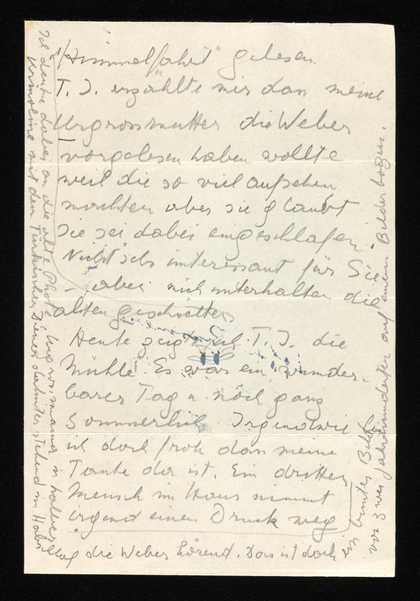 "Himmelfahrt" gelesen.
T. J. erzählte mir dass meine
Urgrossmutter die Weber
vorgelesen haben wollte
weil die so viel aufsehen
machten aber sie glaubt
sie sei dabei eingeschlafen.
Nicht sehr interessant für Sie
– aber mich unterhalten die
alten geschichten
Heute zeig ich T. J. die
Mühle. Es war ein wunder-
barer Tag u. noch ganz
sommerlich. Irgendwie
ich doch froh dass meine
Tante da ist. Ein dritter
Mensch im Haus nimmt
irgend einen Druck weg
die Weber hörend. Das ist doch
ein buntes Bild
vor 3 wei Jahrhunderten auf einem Bilderbogen.
Ich denke dabei an die alte Photo. Urgrossmama in halber
mit dem Türkischen Diener dahinter stehend im Halb